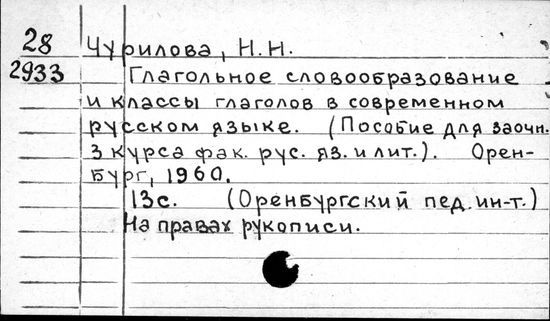 28 Чурилова, Н.Н.
2933 Глагольное словообразование
и классы глаголов в современном
русском языке. (Пособие для заочн.
3 курса фак. рус. яз. и лит.). Орен-
бург, 1960.
13с. (Оренбургский пед. ин-т.)
На правах рукописи.